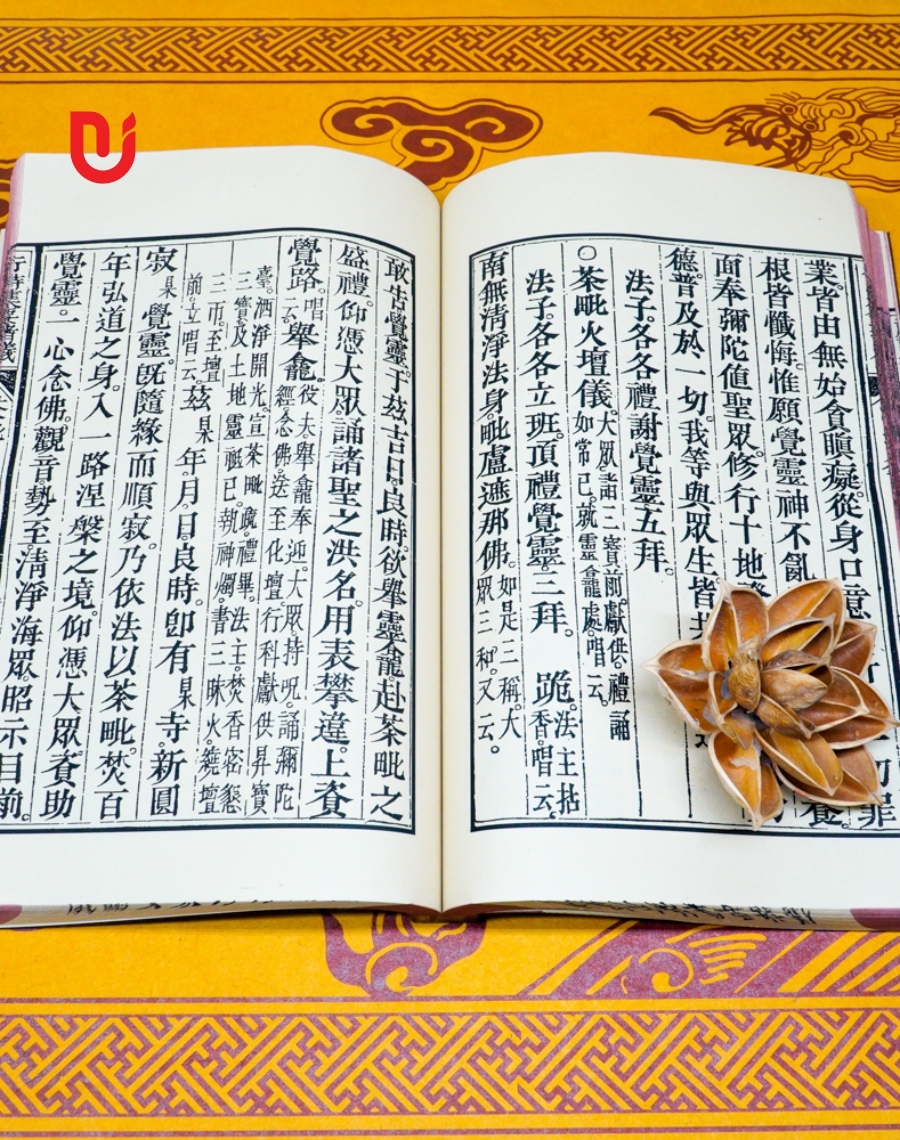 業。皆由無始貪瞋癡。從身口意
罪
根皆懺悔。惟願覺靈神不亂
面奉彌陀值聖眾。修行十地
德。普及於一切。我等與眾生。皆共
法子。各各禮謝覺靈五拜。
○茶毗火壇儀。如常已。就靈龕處。唱云。
大眾詣三寶前。獻供。禮誦
法子。各各立班。頂禮覺靈三拜。跪。香。唱云。
法主拈
南無清淨法身毗盧遮那佛。如是三稱。大
眾三和。又云。
敢告覺靈。于茲吉日良時。欲舉靈龕。赴茶毗之
盛禮。仰憑大眾。誦諸聖之洪名。用表攀違。上資
覺路。唱云。舉龕。役夫舉龕奉迎。大眾持呪。誦彌陀
經。念佛。送至化壇。行科獻供。昇寶
臺。洒淨開光。宣茶毗疏。禮畢。法主。焚香密懇
三寶及土地靈祇已。執神燭。書三昧火。遶壇
三帀。至壇
前。立唱云。茲某年。月。日。良時。即有某寺。新圓
寂某覺靈。既隨緣而順寂。乃依法以茶毗。焚百
年弘道之身。入一路涅槃之境。仰憑大眾。資助
覺靈。一心念佛。觀音勢至。清淨海眾。昭示目前。